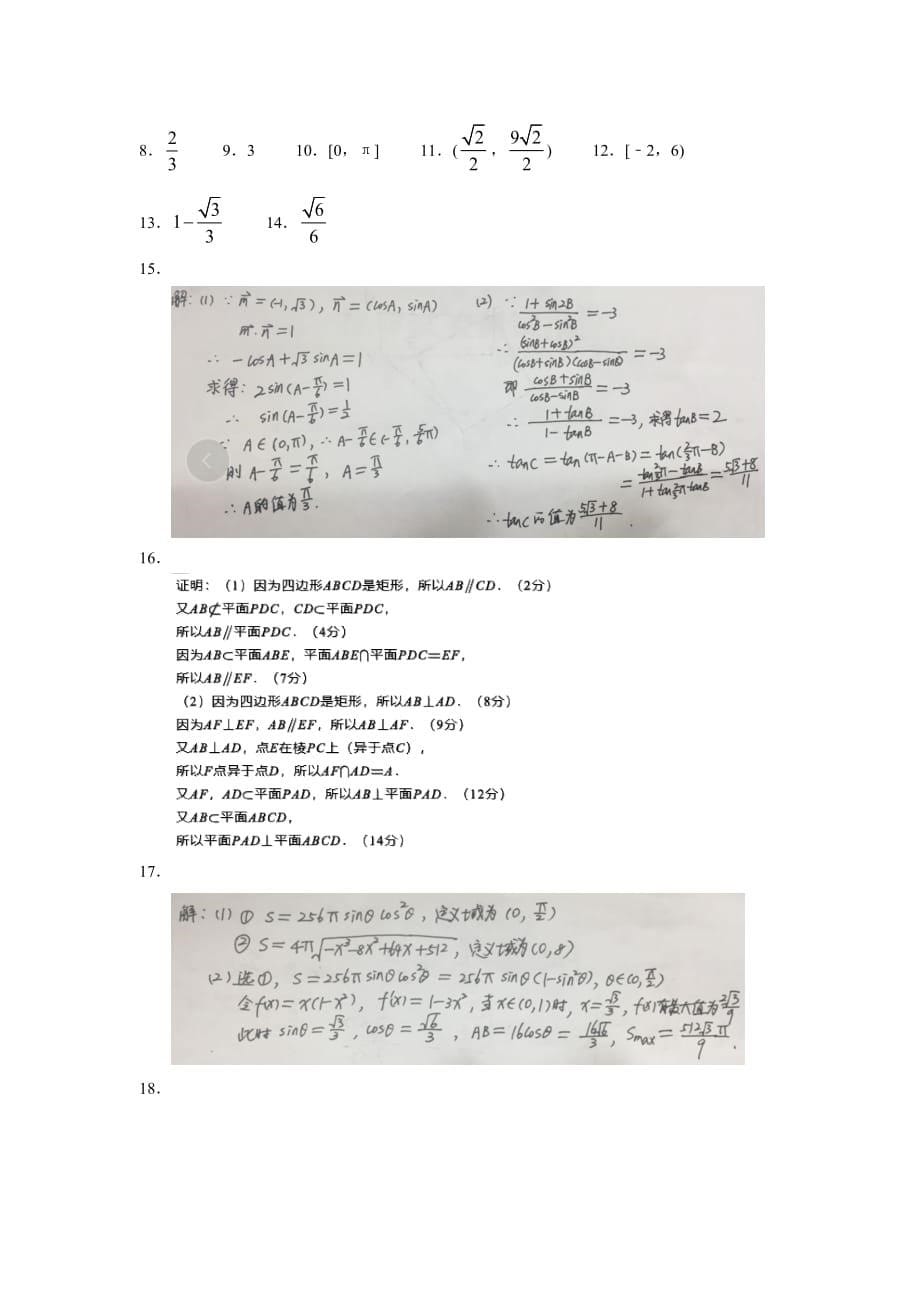 8．2/3 9．3 10．[0，π] 11．(√2/2，9√2/2) 12．[﹣2，6)
13．1−√3/3 14．√6/6
15．
解：(1) ∵ m⃗=(-1,√3), n⃗=(cosA, sinA)
m⃗·n⃗=1
∴ -cosA+√3 sinA=1
求得：2sin(A-π/6)=1
∴ sin(A-π/6)=1/2
∵ A∈(0,π), ∴A-π/6∈(-π/6, 5/6π)
则 A-π/6=π/6, A=π/3
∴A的值为π/3.
(2) ∵ (1+sin2B)/(cos²B-sin²B)=-3
∴ (sinB+cosB)²/((cosB+sinB)(cosB-sinB))=-3
即 (cosB+sinB)/(cosB-sinB)=-3
∴ (1+tanB)/(1-tanB)=-3, 求得tanB=2
∴ tanC=tan(π-A-B)=tan(2/3π-B)
=(tan2/3π-tanB)/(1+tan2/3π·tanB)=(5√3+8)/11
∴tanC的值为(5√3+8)/11.
16．
证明：（1）因为四边形ABCD是矩形，所以AB∥CD．（2分）
又AB⊄平面PDC，CD⊂平面PDC，
所以AB∥平面PDC．（4分）
因为AB⊂平面ABE，平面ABE∩平面PDC＝EF，
所以AB∥EF．（7分）
（2）因为四边形ABCD是矩形，所以AB⊥AD．（8分）
因为AF⊥EF，AB∥EF，所以AB⊥AF．（9分）
又AB⊥AD，点E在棱PC上（异于点C），
所以F点异于点D，所以AF∩AD＝A．
又AF，AD⊂平面PAD，所以AB⊥平面PAD．（12分）
又AB⊂平面ABCD，
所以平面PAD⊥平面ABCD．（14分）
17．
解：(1) ① S=256πsinθcos²θ, 定义域为(0, π/2)
② S=4π√(-x³-8x²+64x+512), 定义域为(0,8)
(2) 选①, S=256πsinθcos²θ=256πsinθ(1-sin²θ), θ∈(0,π/2)
令f(x)=x(1-x²), f'(x)=1-3x², 当x∈(0,1)时, x=√3/3, f(x)有最大值为2√3/9
此时 sinθ=√3/3, cosθ=√6/3, AB=16cosθ=16√6/3, Smax=512√3π/9.
18．